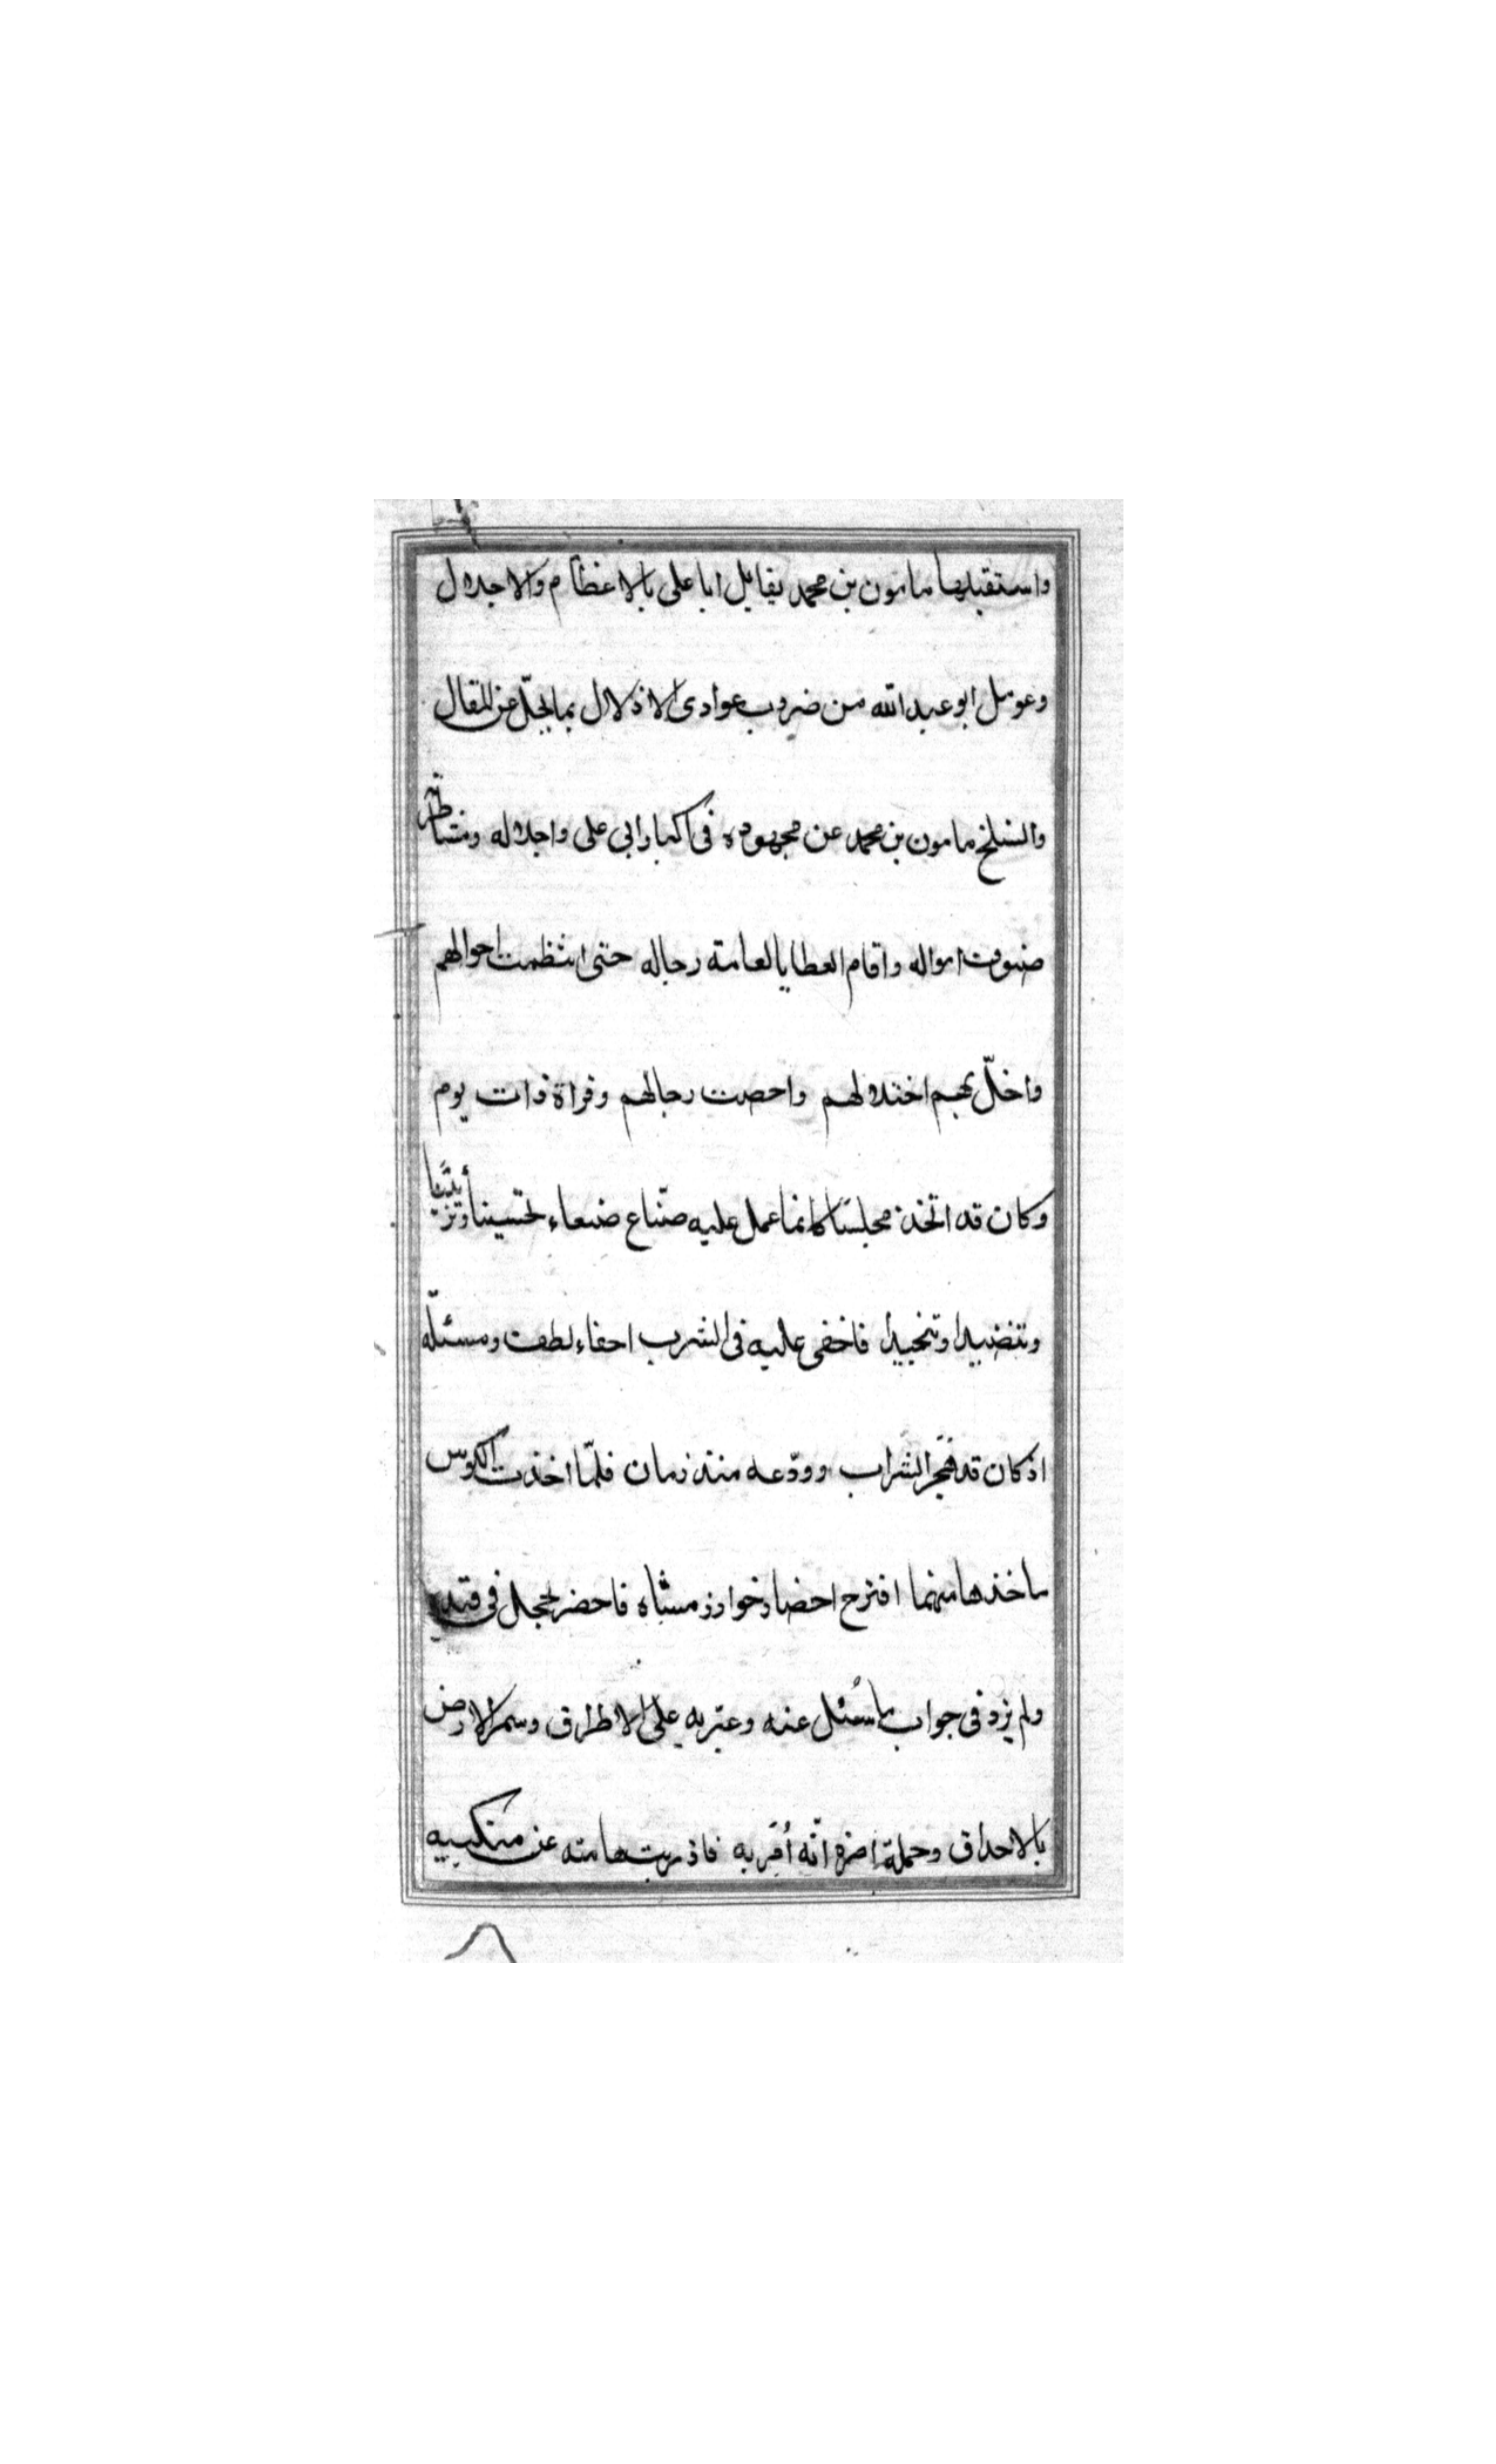 واستقبلها مامون بن محمد يقابل ابا على بالاعظام والاجلال
وعومل ابو عبد الله من ضروب عوادى الاذلال بما يجلّ عن المقال
وانسلخ مامون بن محمد عن مجهوده فى اكبار ابى على واجلاله ومشاطرته
صنوف امواله واقام العطايا لعامة رجاله حتى انتظمت احوالهم
واخلّ بهم اختلالهم واحصت رجالهم وقراة ذات يوم
وكان قد اتخذ مجلسًا كانما عمل عليه صنّاع صنعاء تحسينا وتزيينًا
وتنضيدا وتنجيدا فاخفى عليه فى الشرب احفاء لطف ومسئلة
اذ كان قد هجر الشراب وودّعه منذ زمان فلمّا اخذت الكوس
ماخذها منهما اقترح احضار خوارزمشاه فاحضر يحجل فى قيده
ولم يزد فى جواب ما سُئل عنه وعيّر به على الاطراق وسمر الارض
بالاحداق وجملة امره انّه اُمر به فاذريت هامته عن منكبيه